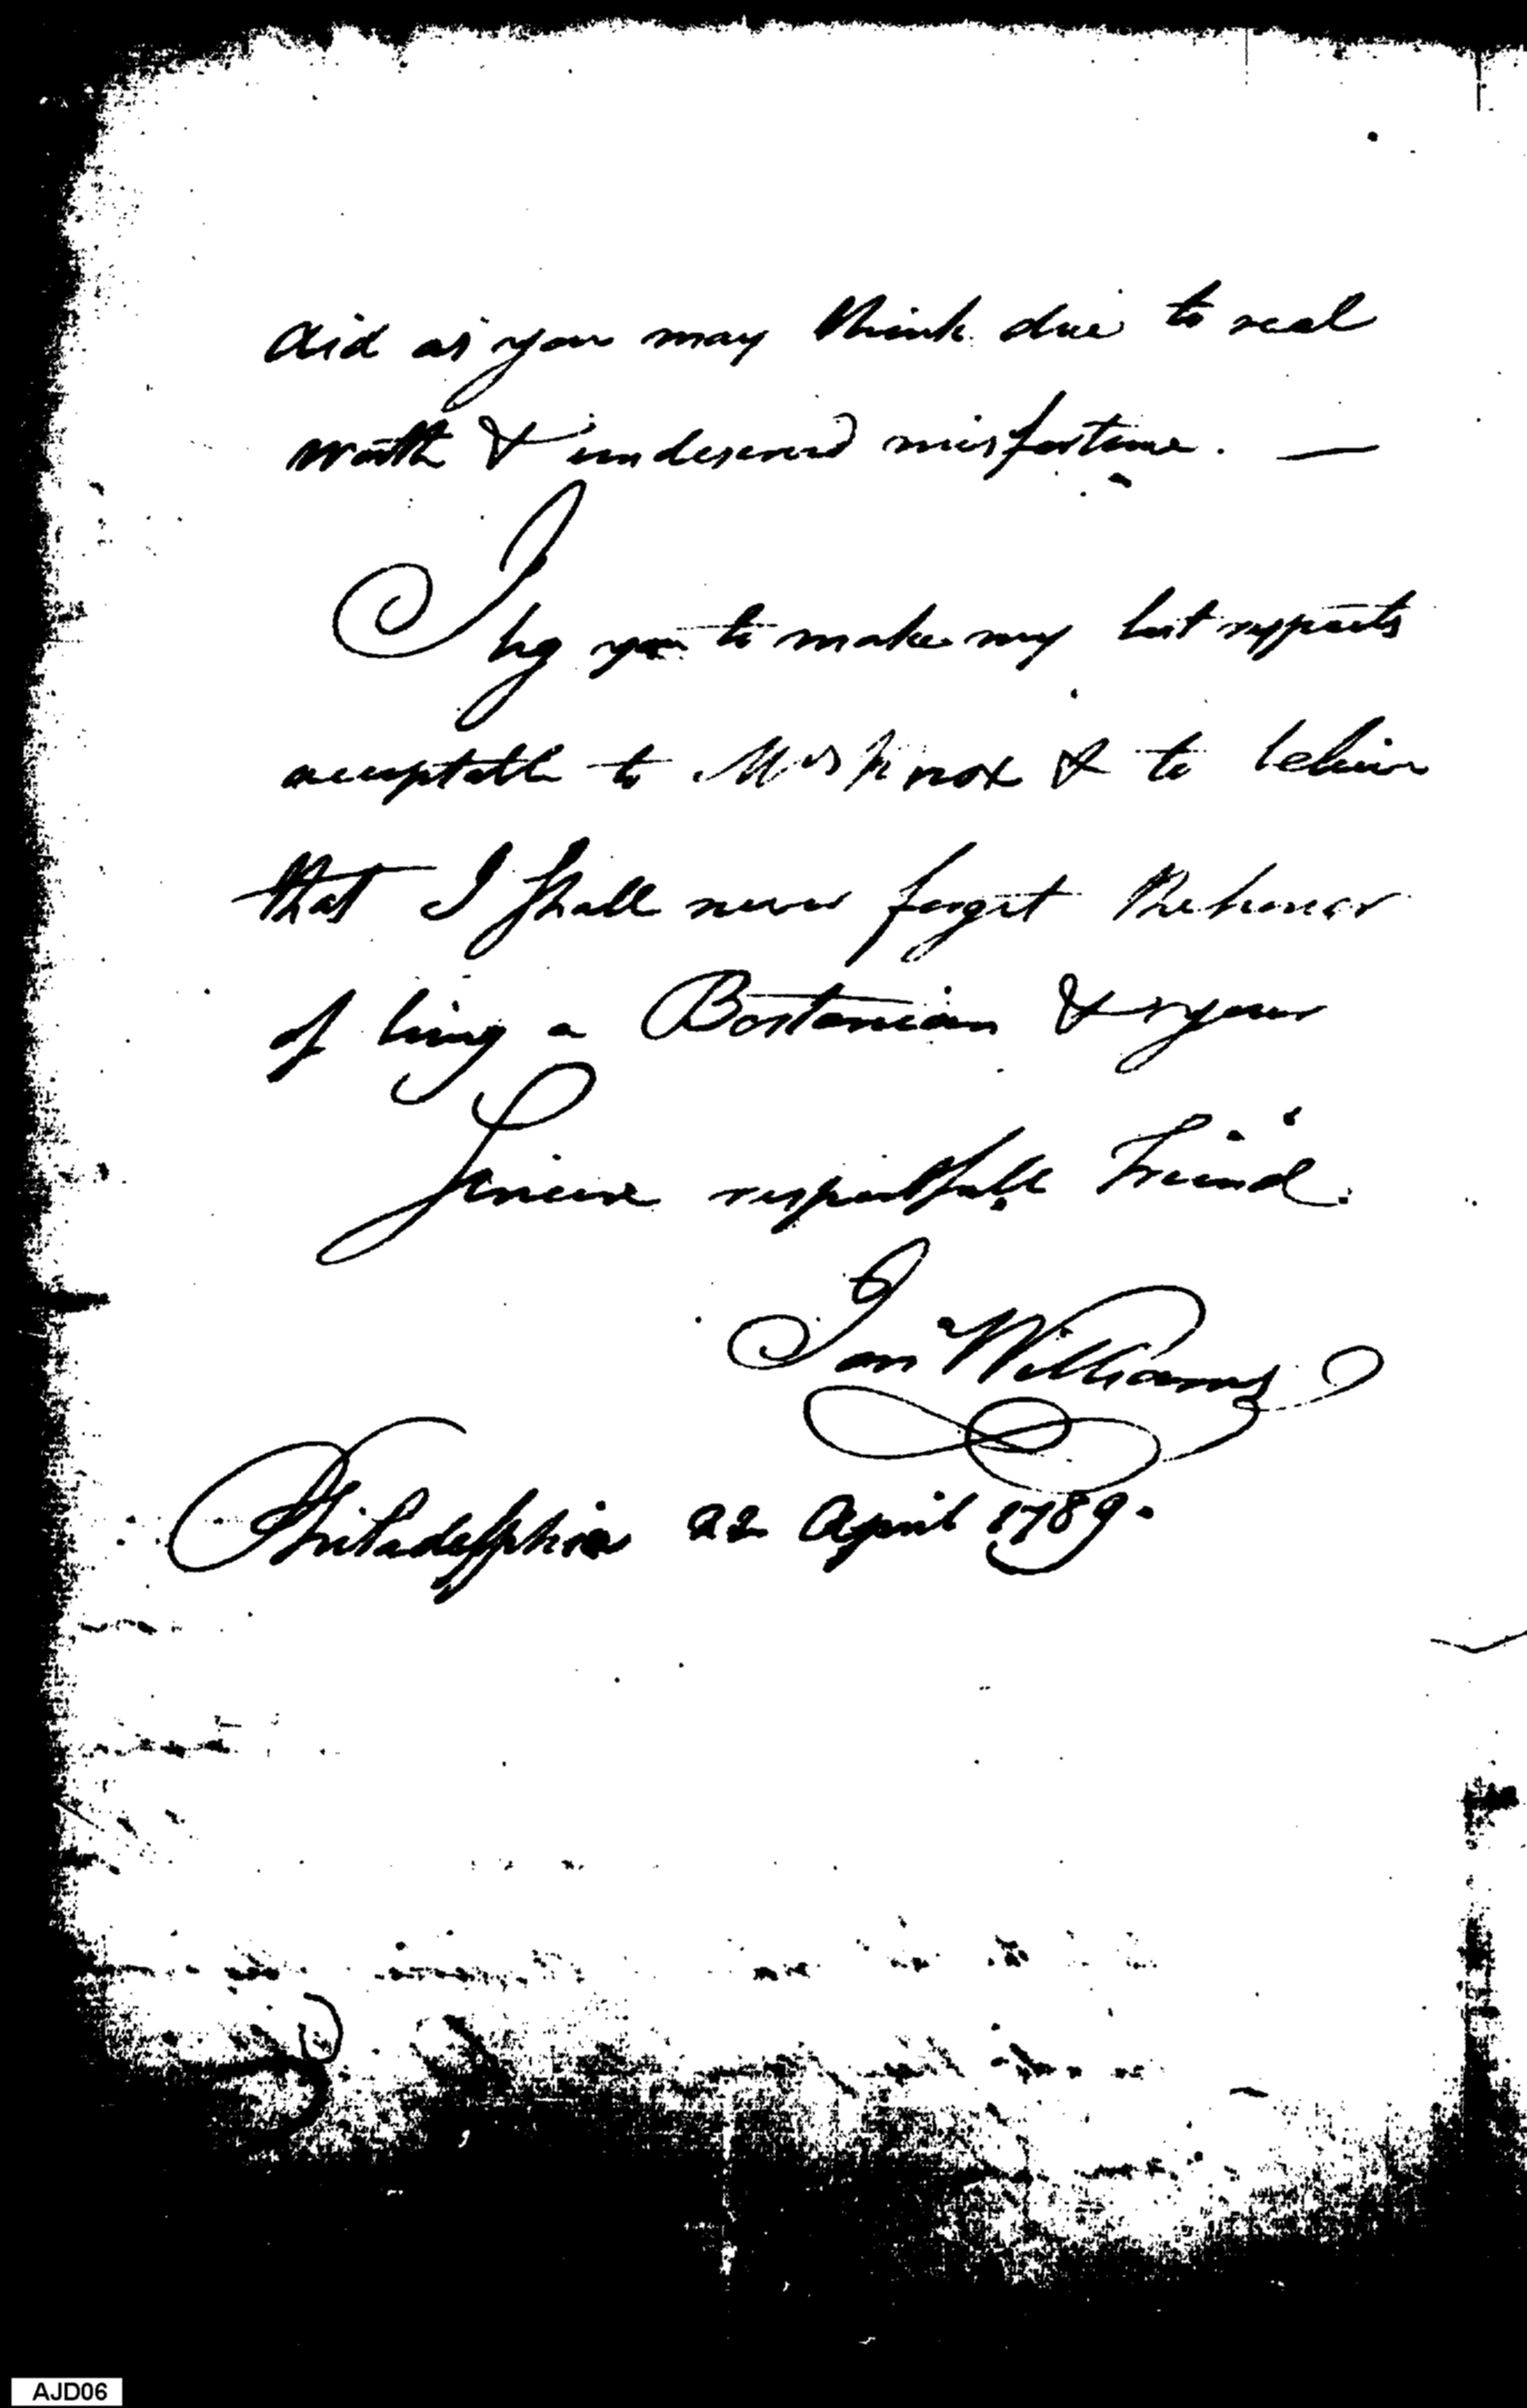 aid as you may think due to real
worth & undeserved misfortune. —
I beg you to make my best respects
acceptable to Mrs Knox & to believe
that I shall never forget the honor
of being a Bostonian & your
Sincere respectfull Friend.
Jon Williams
Philadelphia 22 April 1789.
AJD06